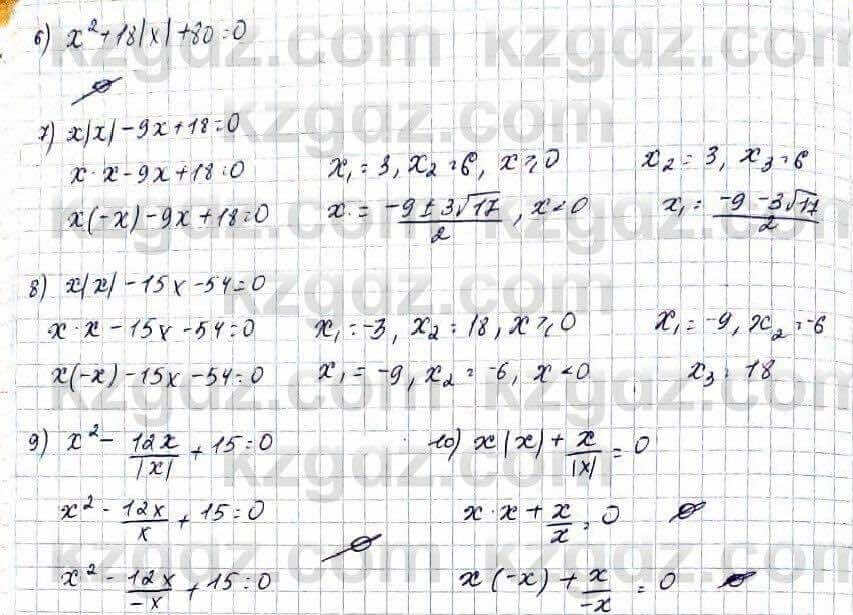 6) x² + 18|x| + 80 = 0
∅
7) x|x| - 9x + 18 = 0
x · x - 9x + 18 = 0    x₁ = 3, x₂ = 6, x ⩾ 0    x₂ = 3, x₃ = 6
x(-x) - 9x + 18 = 0    x = (-9 ± 3√17)/2, x < 0    x₁ = (-9 - 3√17)/2
8) x|x| - 15x - 54 = 0
x · x - 15x - 54 = 0    x₁ = -3, x₂ = 18, x ⩾ 0    x₁ = -9, x₂ = -6
x(-x) - 15x - 54 = 0    x₁ = -9, x₂ = -6, x < 0    x₃ = 18
9) x² - 12x/|x| + 15 = 0    10) x|x| + x/|x| = 0
x² - 12x/x + 15 = 0    x · x + x/x = 0    ∅
∅
x² - 12x/-x + 15 = 0    x(-x) + x/-x = 0    ∅
kzgdz.com